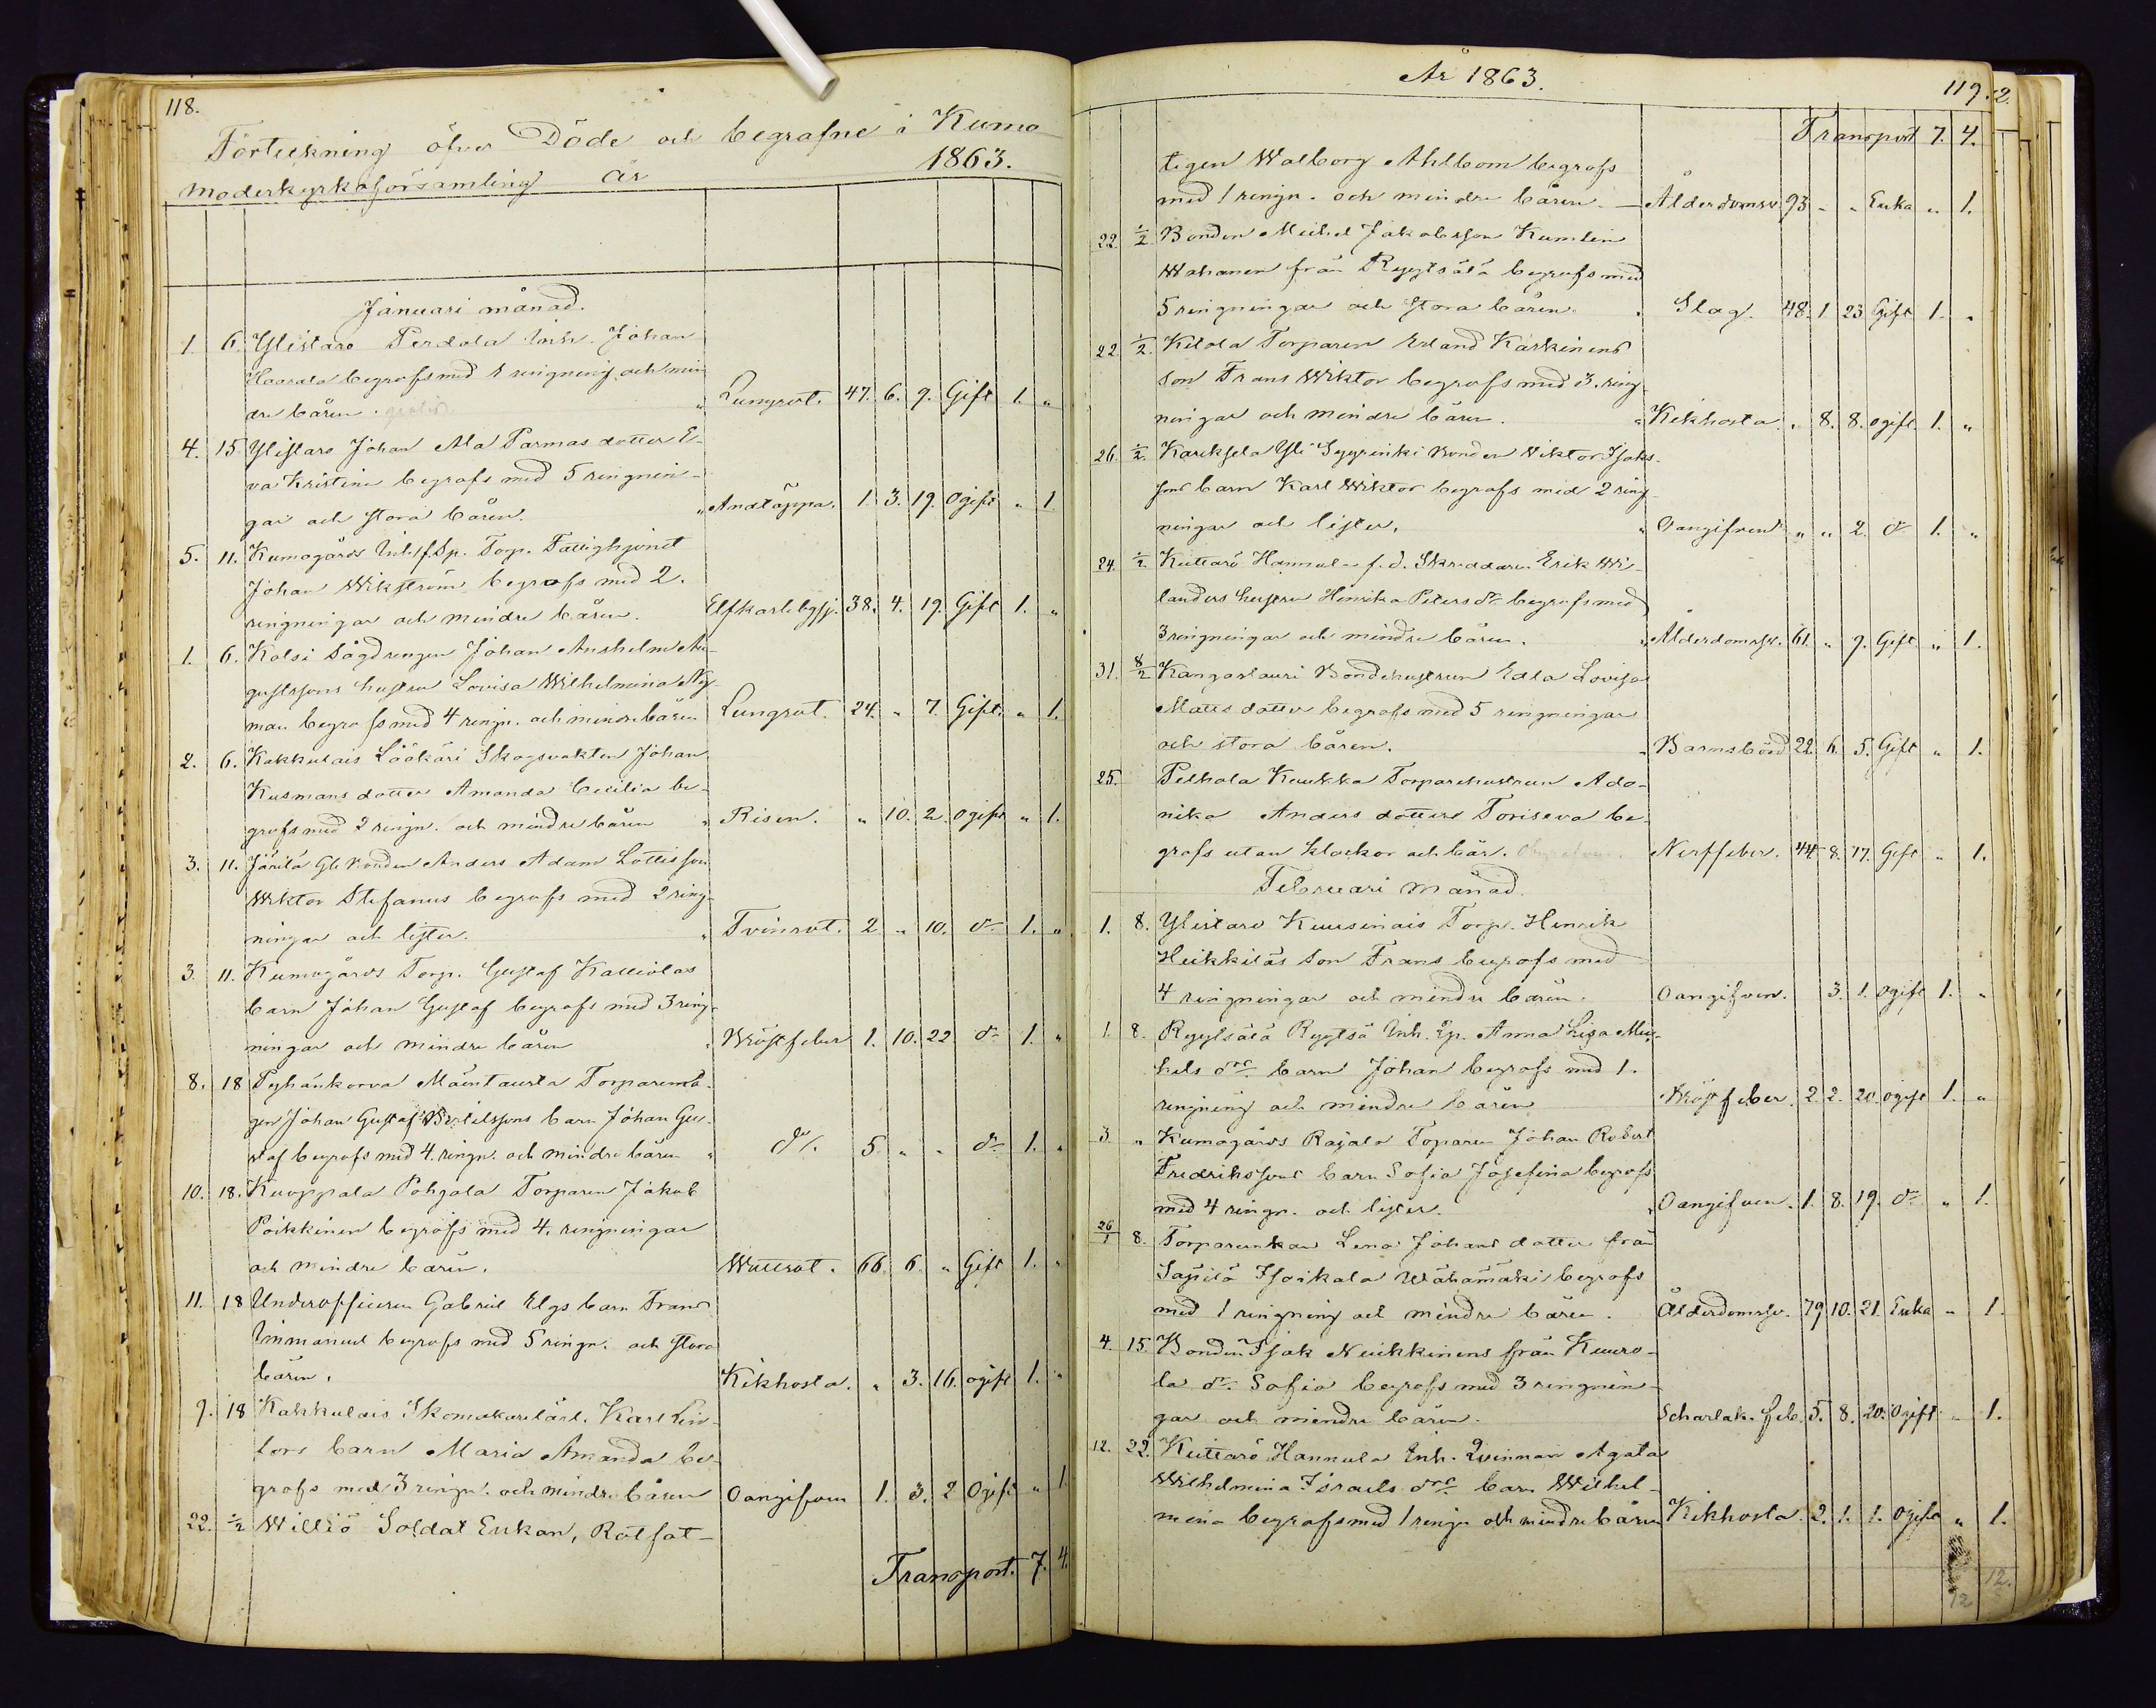 118.
Förteckning öfver Döde och begrafne i Kumo
moderkyrkoförsamling år 1863.
Januari månad.
1. 6. Ylistaro Perdola Inh. Johan
Haarala begrofs med 1 ringning och min
dre båren. gratis. " Lungsot. 47. 6. 9. Gift 1. "
4. 15 Ylistaro Johan Ala Parmas dotter E-
va Kristina begrofs med 5 ringnin-
gar och stora båren. " Andtäppa. 1. 3. 19. Ogift " 1.
5. 11. Kumogårds Inh. f. Sp. Torp. Fattighjonet
Johan Wikström begrofs med 2.
ringningar och mindre båren. Elfkarlebysj. 38. 4. 19. Gift 1. "
1. 6. Kolsi Sågdrengen Johan Anshelm Au-
gustssons hustru Lovisa Wilhelmina Ny-
man begrofs med 4 ringn. och mindre båren Lungsot. 24. " 7. Gift. " 1.
2. 6. Kakkulais Lääkäri Skogsvakten Johan
Kusmans dotter Amanda Cecilia be-
grofs med 2 ringn. och mindre båren " Risen. " 10. 2. Ogift " 1.
3. 11. Järilä Yli bonden Anders Adam Lottis son
Wiktor Stefanus begrofs med 2 ring-
ningar och lister. " Tvinsot. 2 " 10. do 1. "
3. 11. Kumogårds Torp. Gustaf Kalliolas
barn Johan Gustaf begrofs med 3 ring-
ningar och mindre båren " Bröstfeber 1. 10. 22 do 1. "
8. 18 Pyhänkorva Mäntausta Torparemå-
gen Johan Gustaf Bertilssons barn Johan Gu-
staf begrofs med 4. ringn. och mindre båren " do. 5 " " do 1. "
10. 18. Kuoppala Pohjala Torparen Jakob
Poikkinen begrofs med 4. ringningar
och mindre båren. Wattsot. 66. 6. " Gift 1. "
11. 18 Underofficeren Gabriel Elgs barn Frans
Immanuel begrofs med 5 ringn. och stora
båren. Kikhosta. " 3. 16. ogift 1. "
9. 18 Kakkulais Skomakarelärl. Karl Lin-
fors barn Maria Amanda be-
grofs med 3 ringn. och mindre båren Oangifven 1. 3. 2 Ogift " 1
22. 1/2 Williö Soldat Enkan, Rotfat-
Transport. 7. 4.
År 1863. 119. 2.
Transport 7. 4.
tigen Walborg Ahlbom begrofs
med 1 ringn. och mindre båren. Ålderdomsv. 93 " " Enka " 1.
22 1/2 Bonden Michel Jakobsson Kumlin
Wahanen från Ryytsälä begrofs med
5 ringningar och stora båren. " Slag. 48. 1 23 Gift 1. "
22 1/2. Kilola Torparen Erland Karkinens
son Frans Wiktor begrofs med 3. ring
ningar och mindre båren. " Kikhosta. " 8. 8. ogift 1. "
26. 1/2. Kareksela Yli Syyrinki bonden Wiktor Isaks-
sons barn Karl Wiktor begrofs med 2 ring
ningar och lister. " Oangifvend " " 2. do 1. "
24. 1/2 Kuttarö Hannula f. d. Skreddaren Erik Wi-
landers hustru Henrika Peters dr begrofs med
3 ringningar och mindre båren. " Ålderdomssv. 61. " 9. Gift " 1.
31. 8/2 Kangastauri Bondehustrun Edla Lovisa
Matts dotter begrofs med 5 ringningar
och stora båren. " Barnsbörd 22. 6. 5. Gift " 1.
25. Pelhola Kuukka Torparehustrun Ado-
nika Anders dotter Toriseva be-
grofs utan klockor och bår. Nerffeber. 44 8. 17. Gift " 1.
Februari månad.
1. 8. Ylistaro Kuusinais Torp. Henrik
Heikkiläs son Frans begrofs med
4 ringningar och mindre båren. Oangifven. 3. 1. ogift 1. "
1. 8. Ryytsälä Ryytsä Inh. Ep. Anna Lisa Mic-
hels drs barn Johan begrofs med 1.
ringning och mindre båren Bröstfeber. 2. 2. 20. ogift 1. "
3. " Kumogårds Rajala Toparen Johan Robert
Fredrikssons barn Sofia Josefina begrofs
med 4 ringn. och lister. " Oangifven. 1. 8. 19. do " 1.
26/1 8. Torparenkan Lena Johans dotter från
Säpilä Isoikala Wähämäki begrofs
med 1 ringning och mindre båren. Ålderdomssv. 79 10. 21. Enka " 1.
4. 15 Bonden Isak Nuikkinens från Kuuro-
la dr. Sofia begrofs med 3 ringnin-
gar och mindre båren. Scharlak. feb. 5. 8. 20. Ogift " 1.
12. 22. Kuttarö Hannula Inh. Qvinnan Agata
Wilhelmina Israels drs barn Wilhel-
mina begrofs med 1 ringn och mindre båren Kikhosta. 2. 1. 1. ogift " 1.
12 12.